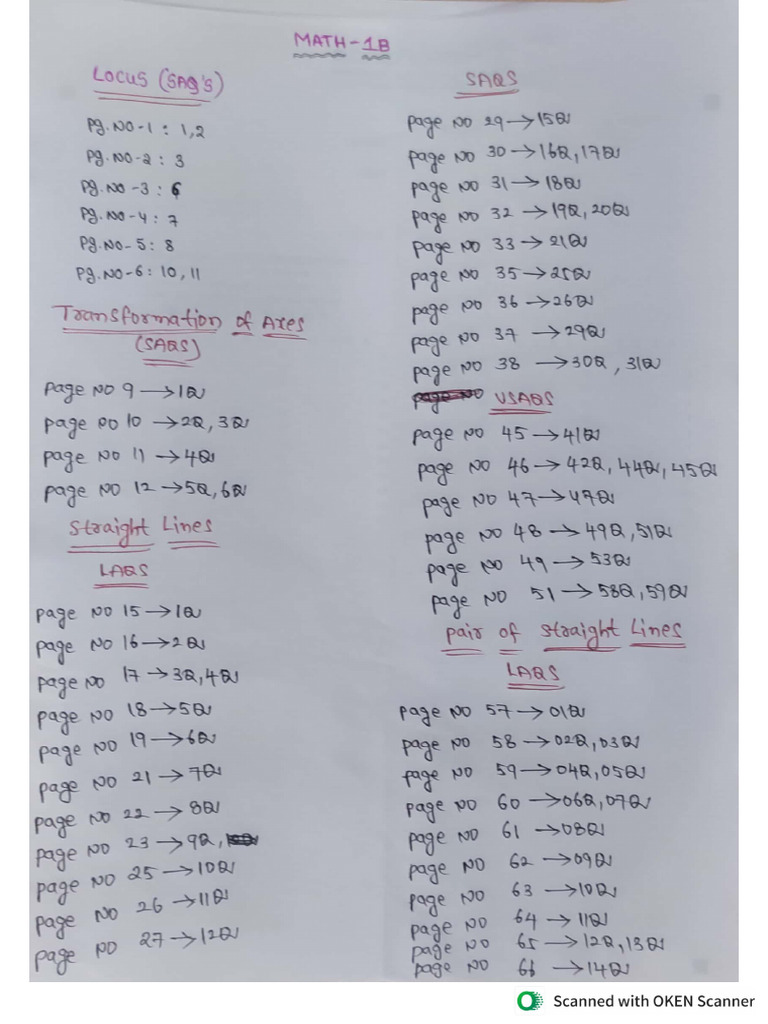 MATH-1B
LOCUS (SAQ'S)
Pg.NO-1 : 1,2
Pg.NO-2 : 3
Pg.NO-3 : 6
Pg.NO-4 : 7
Pg.NO-5 : 8
Pg.NO-6 : 10, 11
Transformation of Axes
(SAQS)
page NO 9 → 1Q
page no 10 → 2Q, 3Q
page NO 11 → 4Q
page NO 12 → 5Q, 6Q
Straight Lines
LAQS
page NO 15 → 1Q
page NO 16 → 2Q
page NO 17 → 3Q, 4Q
page NO 18 → 5Q
page NO 19 → 6Q
page NO 21 → 7Q
page NO 22 → 8Q
page NO 23 → 9Q,
page NO 25 → 10Q
page NO 26 → 11Q
page NO 27 → 12Q
SAQS
page NO 29 → 15Q
page NO 30 → 16Q, 17Q
page NO 31 → 18Q
page NO 32 → 19Q, 20Q
page NO 33 → 21Q
page NO 35 → 25Q
page NO 36 → 26Q
page NO 37 → 29Q
page NO 38 → 30Q, 31Q
VSAQS
page NO 45 → 41Q
page NO 46 → 42Q, 44Q, 45Q
page NO 47 → 47Q
page NO 48 → 49Q, 51Q
page NO 49 → 53Q
page NO 51 → 58Q, 59Q
pair of straight Lines
LAQS
page NO 57 → 01Q
page NO 58 → 02Q, 03Q
page NO 59 → 04Q, 05Q
page NO 60 → 06Q, 07Q
page NO 61 → 08Q
page NO 62 → 09Q
page NO 63 → 10Q
page NO 64 → 11Q
page NO 65 → 12Q, 13Q
page NO 66 → 14Q
Scanned with OKEN Scanner